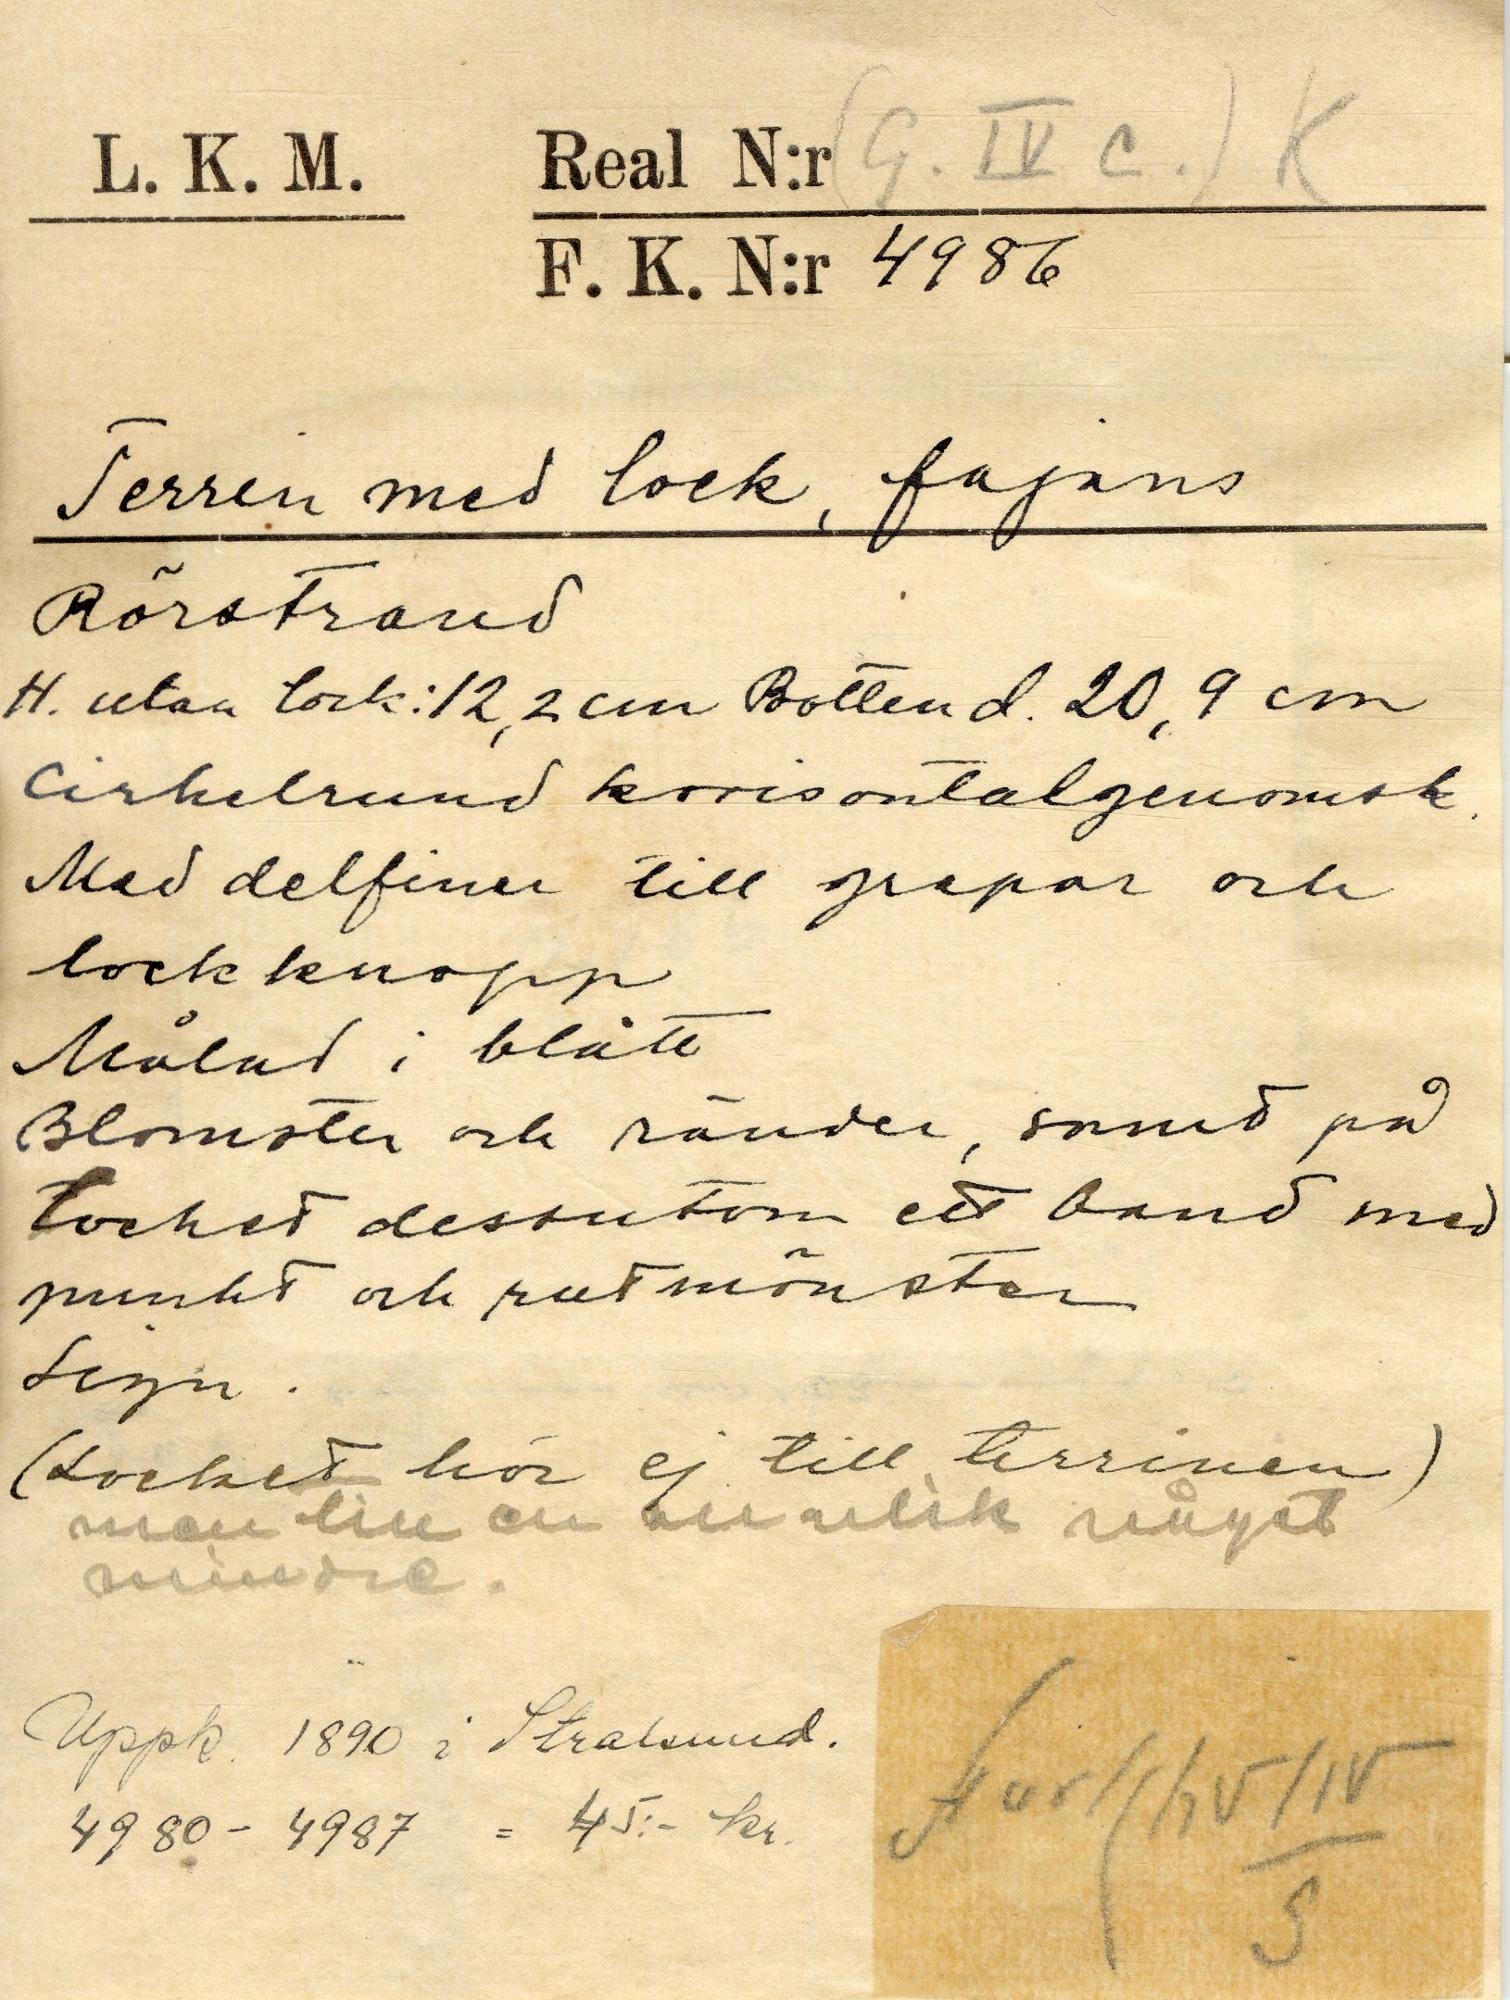 L. K. M.
Real N:r (G. IV c.) K
F. K. N:r 4986
Terrin med lock, fajans
Rörstrand
H. utan lock: 12,2 cm Botten d. 20,9 cm
Cirkelrund horisontalgenomsk.
Med delfiner till grepar och
lockknopp
Målad i blått
Blomster och ränder, samt på
locket dessutom ett band med
punkt och rutmönster
Sign.
(Locket hör ej till terrinen)
men till en
något
mindre.
Uppk. 1890 i Stralsund.
4980 - 4987 = 45:- kr.